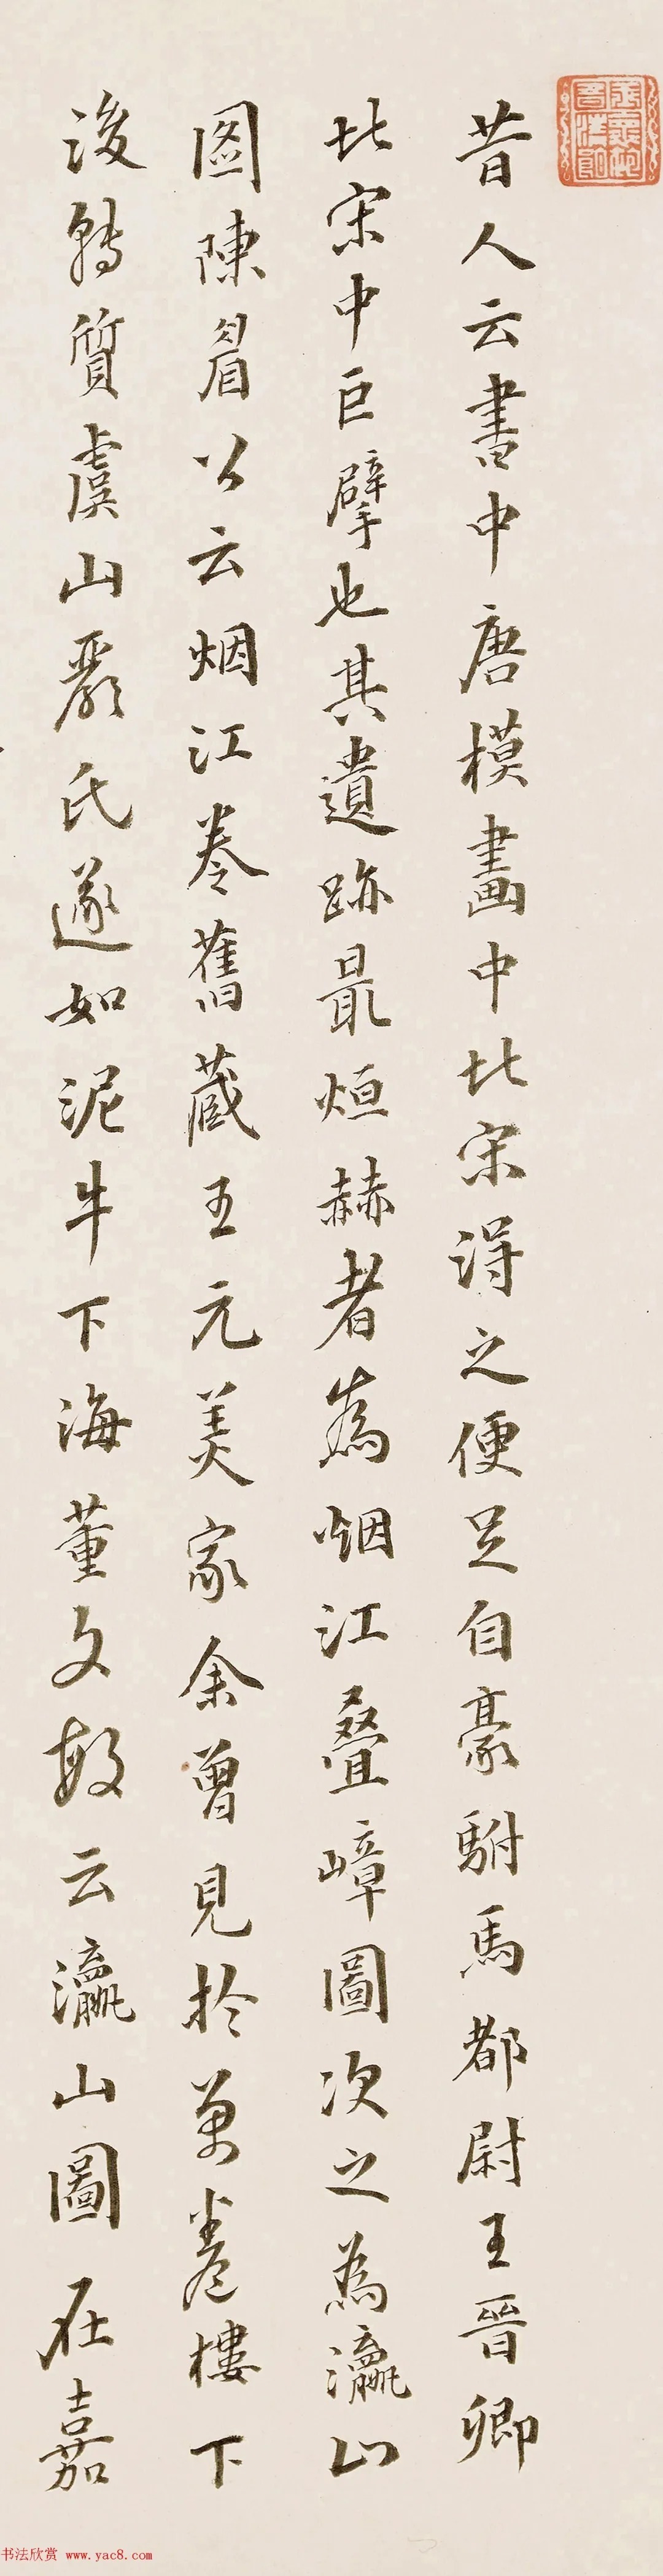 昔人云書中唐模畫中北宋得之便足自豪駙馬都尉王晉卿
北宋中巨擘也其遺跡最烜赫者為烟江疊嶂圖次之為瀛山
圖陳眉公云烟江卷舊蔵王元美家余曾見於萬卷樓下
後轉質虞山嚴氏遂如泥牛下海董文敏云瀛山圖在嘉
书法欣赏 www.yac8.com